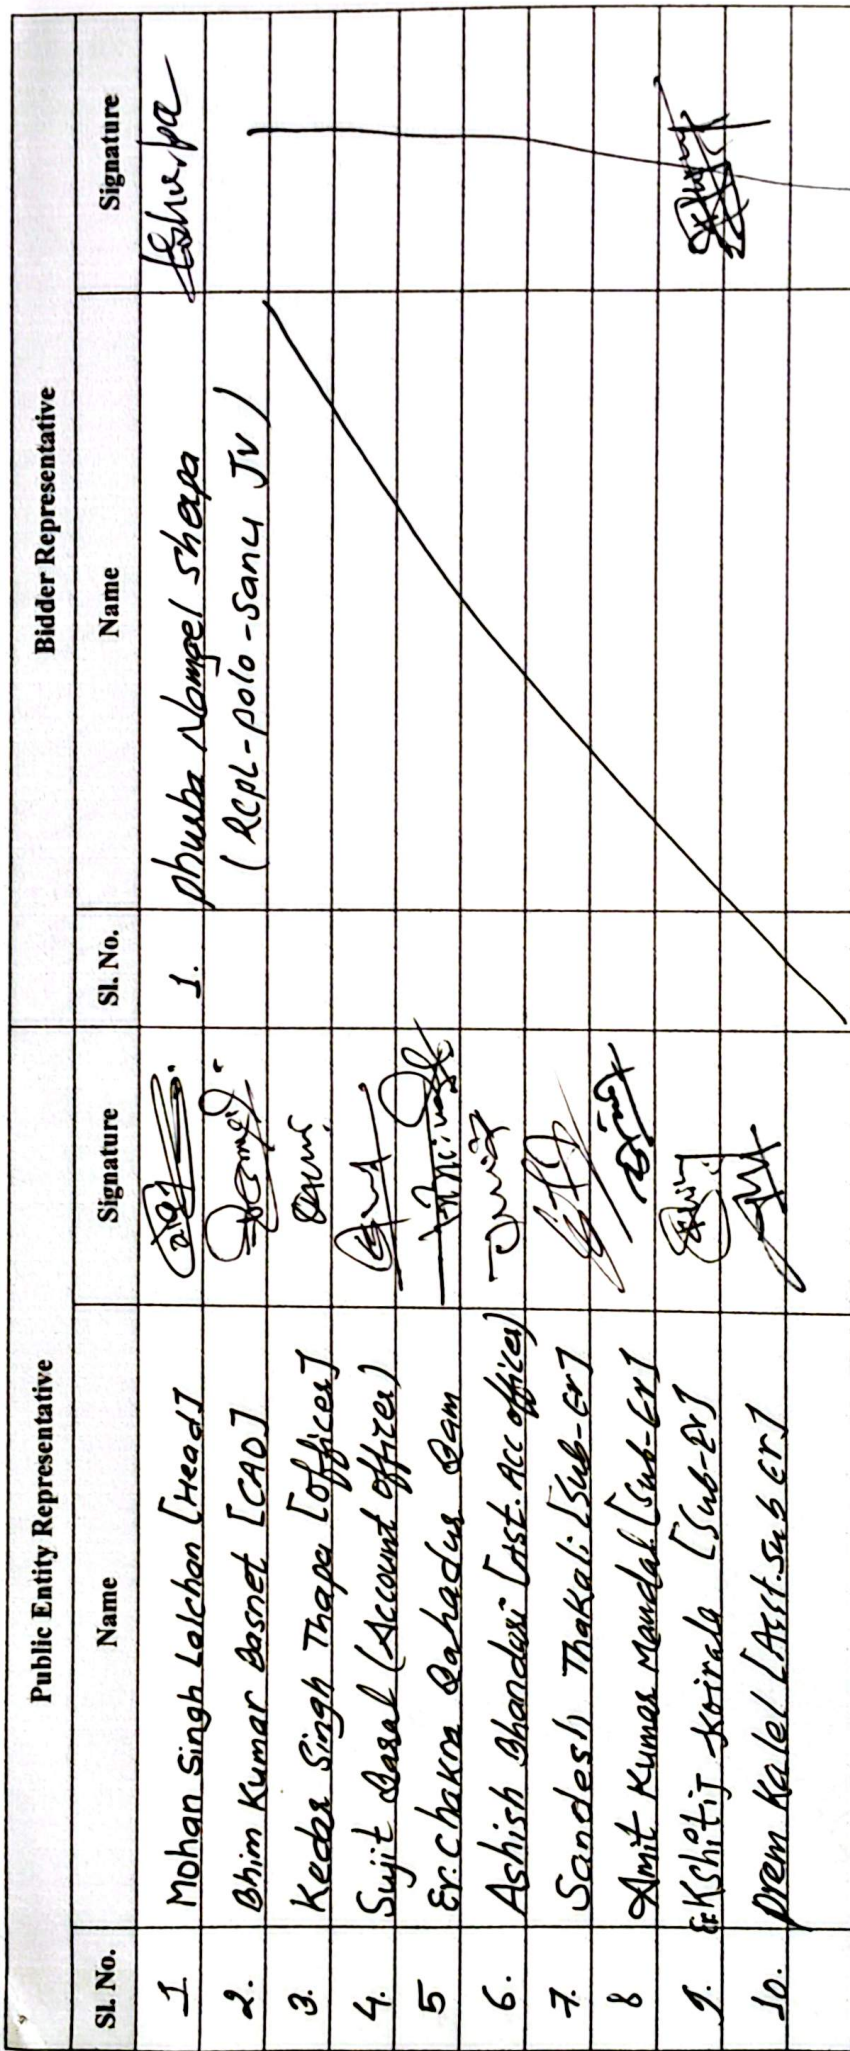 Public Entity Representative Bidder Representative
Sl. No. Name Signature Sl. No. Name Signature
1 Mohan Singh Lalchan [Head] 1. Phurba Namgel Sherpa
2. Bhim Kumar Basnet [CAO] (RCPL-polo-Sanu JV)
3. Kedar Singh Thapa [Officer]
4. Sujit Baral (Account Officer)
5 Er. Chakra Bahadur Bam
6. Ashish Bhandari [Ast. Acc officer]
7. Sandesh Thakali [Sub-Er]
8 Amit Kumar Mandal [Sub-Er]
9. Er Kshitij Koirala [Sub-Er]
10. Prem Kalel [Asst. Sub Er]